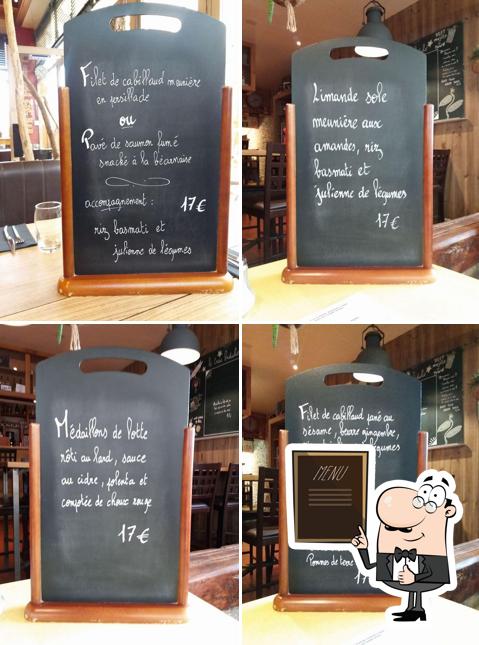 Filet de cabillaud meunière
en persillade
ou
Pavé de saumon fumé
snacké à la béarnaise
accompagnement :
17€
riz basmati et
julienne de légumes
Limande sole
meunière aux
amandes, riz
basmati et
julienne de légumes
17€
Médaillons de lotte
rôti au lard, sauce
au cidre, polenta et
compotée de choux rouge
17€
Filet de cabillaud pané au
sésame, beurre gingembre,
légumes
MENU
Pommes de terre
17